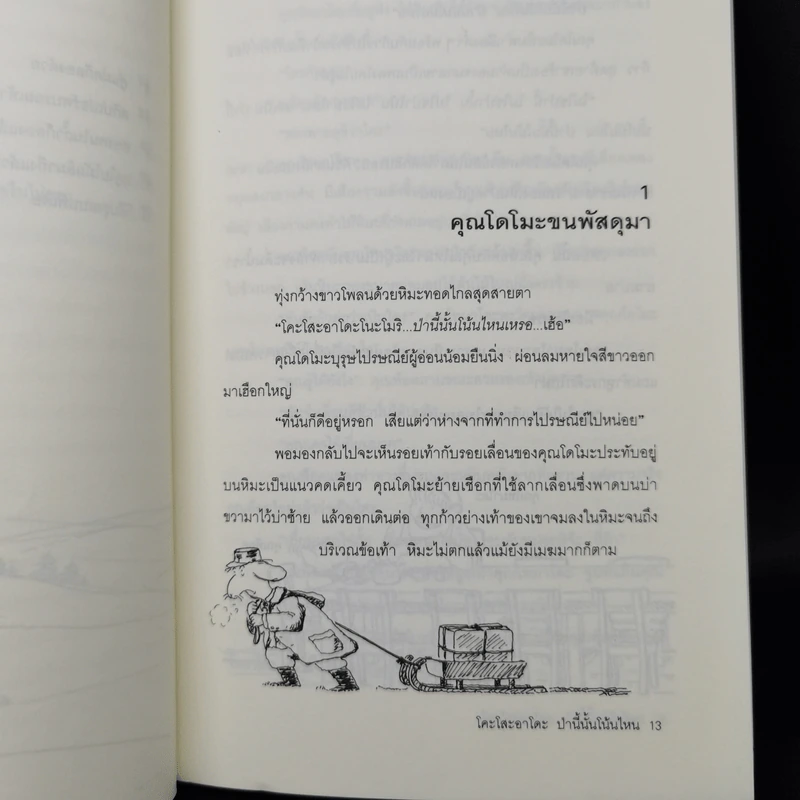 1
คุณโดโมะขนพัสดุมา
ทุ่งกว้างขาวโพลนด้วยหิมะทอดไกลสุดสายตา
“โคะโสะอาโดะโนะโมริ...ป่านี้นั้นโน้นไหนเหรอ...เฮ้อ”
คุณโดโมะบุรุษไปรษณีย์ผู้อ่อนน้อมยืนนิ่ง ผ่อนลมหายใจสีขาวออก
มาเฮือกใหญ่
“ที่นั่นก็ดีอยู่หรอก เสียแต่ว่าห่างจากที่ทำการไปรษณีย์ไปหน่อย”
พอมองกลับไปจะเห็นรอยเท้ากับรอยเลื่อนของคุณโดโมะประทับอยู่
บนหิมะเป็นแนวคดเคี้ยว คุณโดโมะย้ายเชือกที่ใช้ลากเลื่อนซึ่งพาดบนบ่า
ขวามาไว้บ่าซ้าย แล้วออกเดินต่อ ทุกก้าวย่างเท้าของเขาจมลงในหิมะจนถึง
บริเวณข้อเท้า หิมะไม่ตกแล้วแม้ยังมีเมฆมากก็ตาม
โคะโสะอาโดะ ป่านี้นั้นโน้นไหน 13